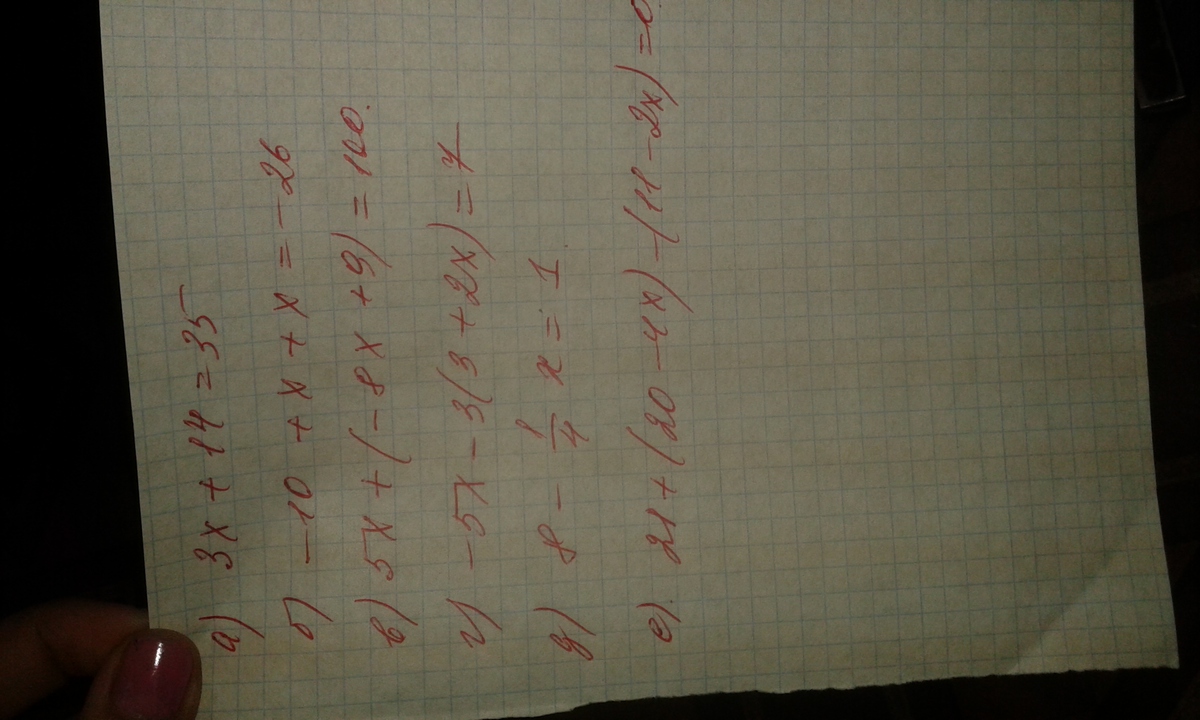 а) 3x + 14 = 35
б) -10 + x + x = -26
в) 5x + (-8x + 9) = 100.
г) -5x - 3(3 + 2x) = 7
д) 8 - 1/4 x = 1
е). 21 + (20 - 4x) - (11 - 2x) = 0